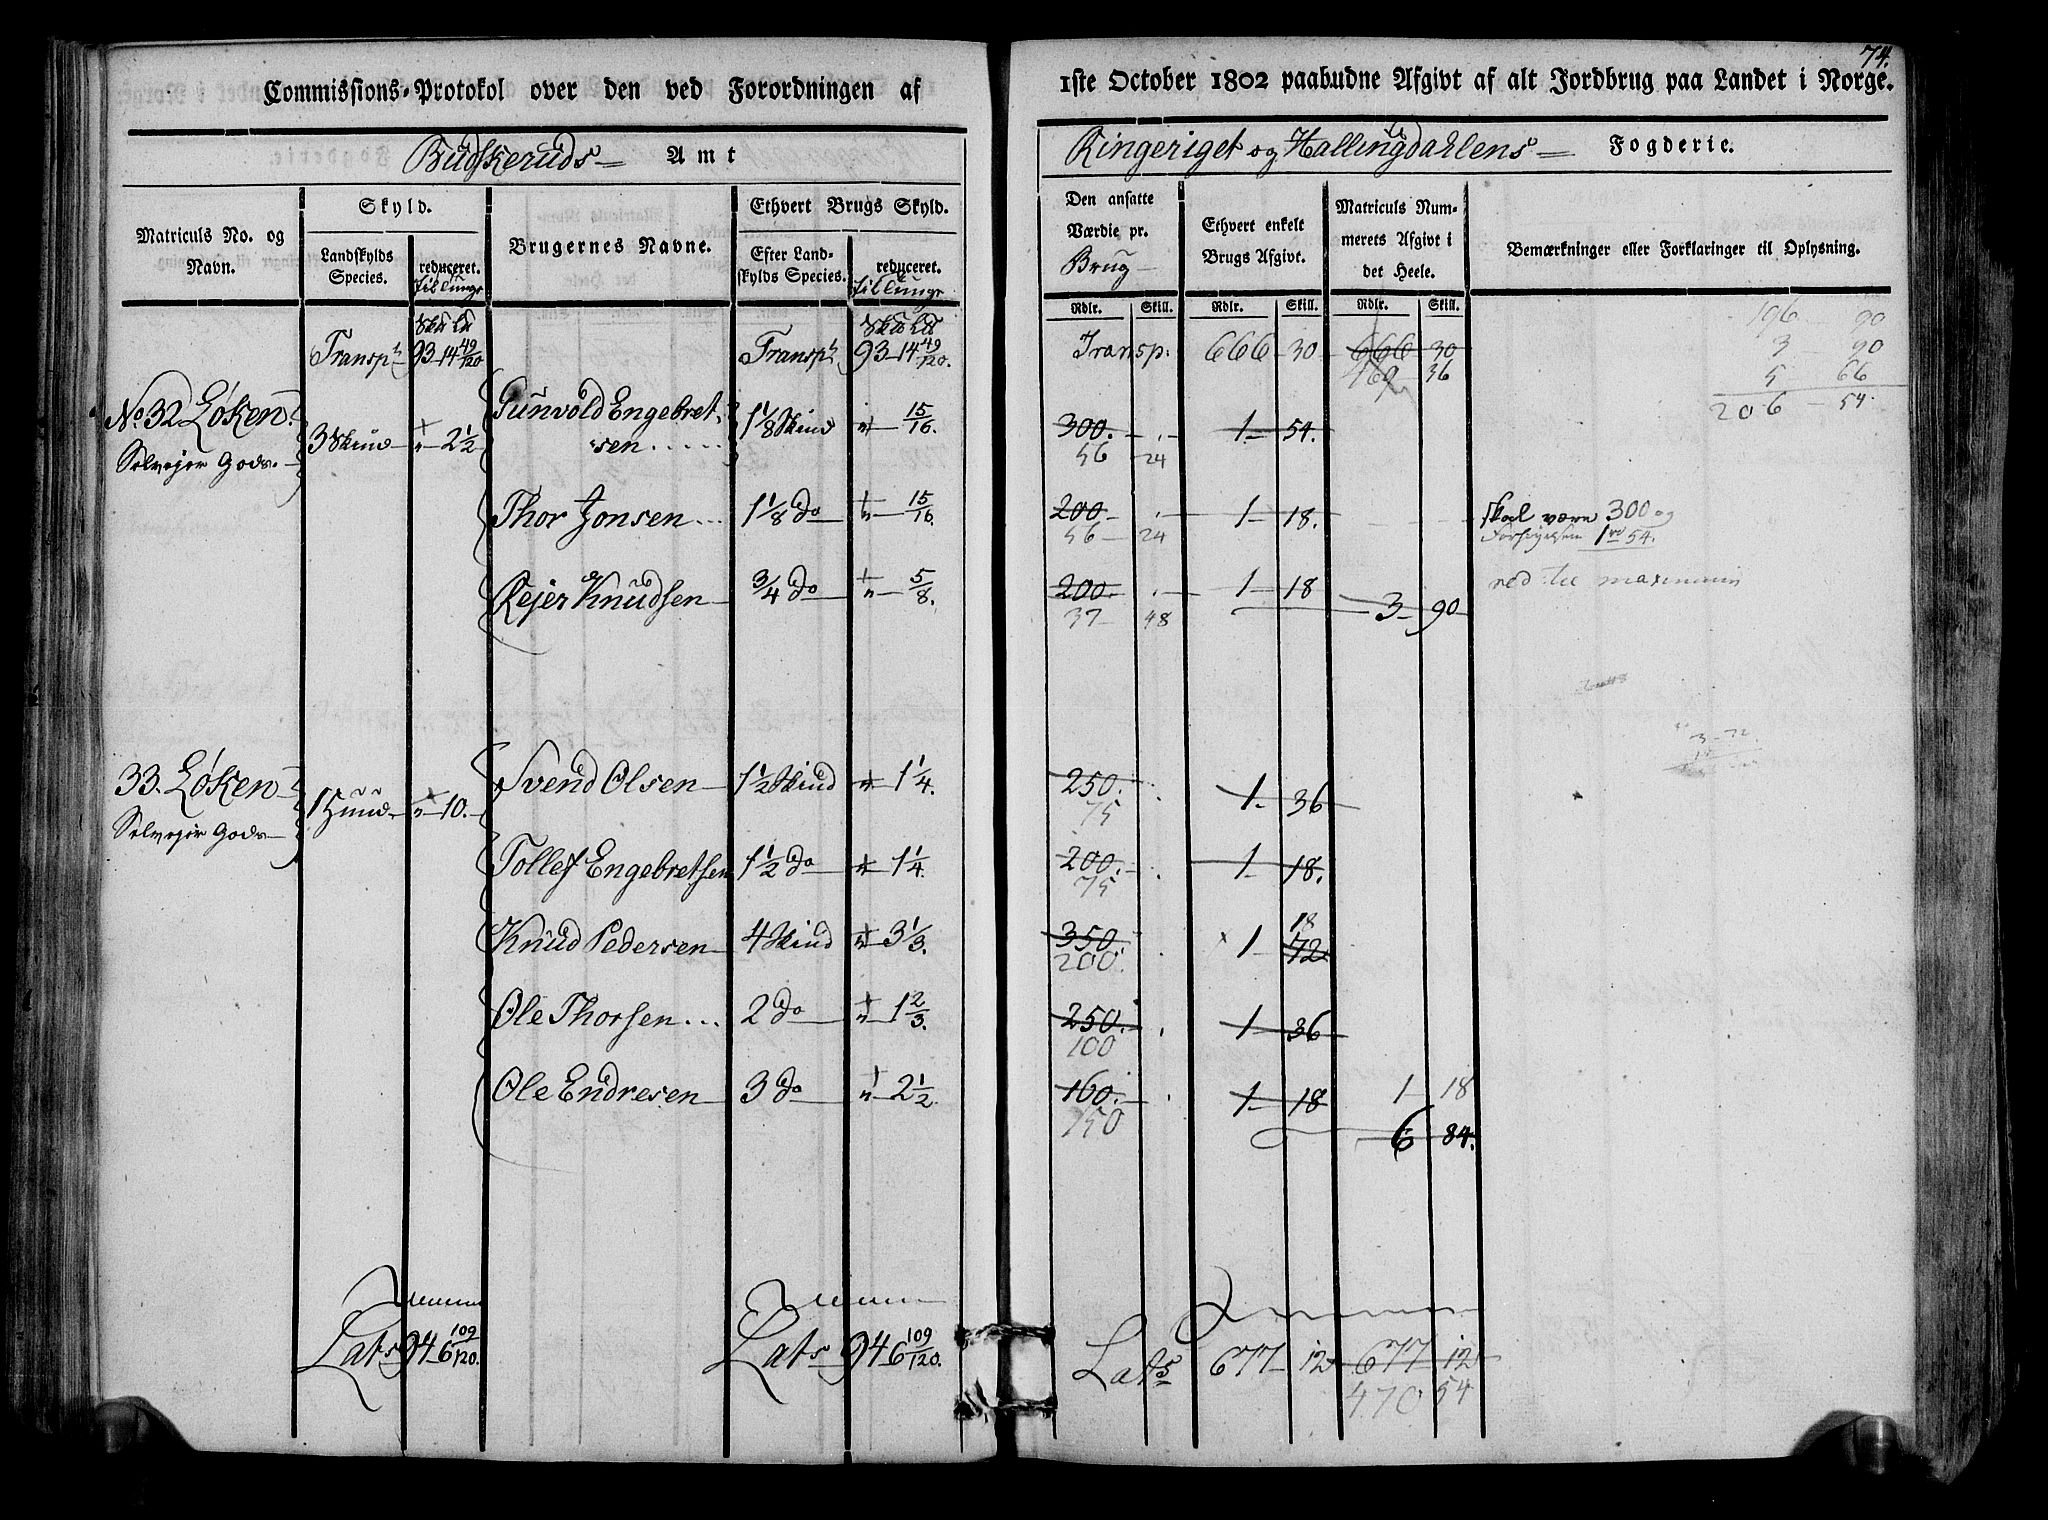 74.
Commissions-Protokol over den ved Forordningen af
1ste October 1802 paabudne Afgivt af alt Jordbrug paa Landet i Norge.
Budskeruds Amt
Ringeriget og Hallingdahlens Fogderie.
Matriculs No. og Navn.
Skyld.
Landskylds Species.
reduceret.
Brugernes Navne.
Ethvert Brugs Skyld.
Efter Landskylds Species.
reduceret.
Den ansatte Værdie pr. Brug
Ethvert enkelt Brugs Afgivt.
Matriculs Nummerets Afgivt i det Heele.
Bemærkninger eller Forklaringer til Oplysning.
Rdlr. Skill. Rdlr. Skill. Rdlr. Skill.
Transpt 93 - 14 49/120 Transpt 93 - 14 49/120. Transp. 666 - 30 666 30
169 36
196 90
3 90
5 66
206 - 54.
No. 32 Løken 3 Skind " 2 1/2 Gunvold Engebretsen 1 1/8 Skind " 15/16. 300. 1 - 54.
Selvejer Gods. 56 24
Thor Jonsen 1 1/8 do " 15/16. 200 1 - 18. skal være 300 og
56 24 1 rd 54.
Rejer Knudsen 3/4 do " 5/8. 200. 1 - 18 ned til maximum
37 48 3 - 90
33. Løken 1 Huud " 10. Svend Olsen 1 1/2 Skind " 1 1/4. 250. 1 - 36
Selvejer Gods 75
Tollef Engebretsen 1 1/2 do " 1 1/4. 200. 1 - 18.
75
Knud Pedersen 4 Skind " 3 1/3. 350. 1 - 72 18
200.
Ole Thorsen 2 do " 1 2/3. 250. 1 - 36
100
Ole Endresen 3 do " 2 1/2 160. 1 - 18 1 18
150 6 84.
Lats 94 - 6 109/120. Lats 94 6 109/120. Lats 677 - 12 677 12
470 54